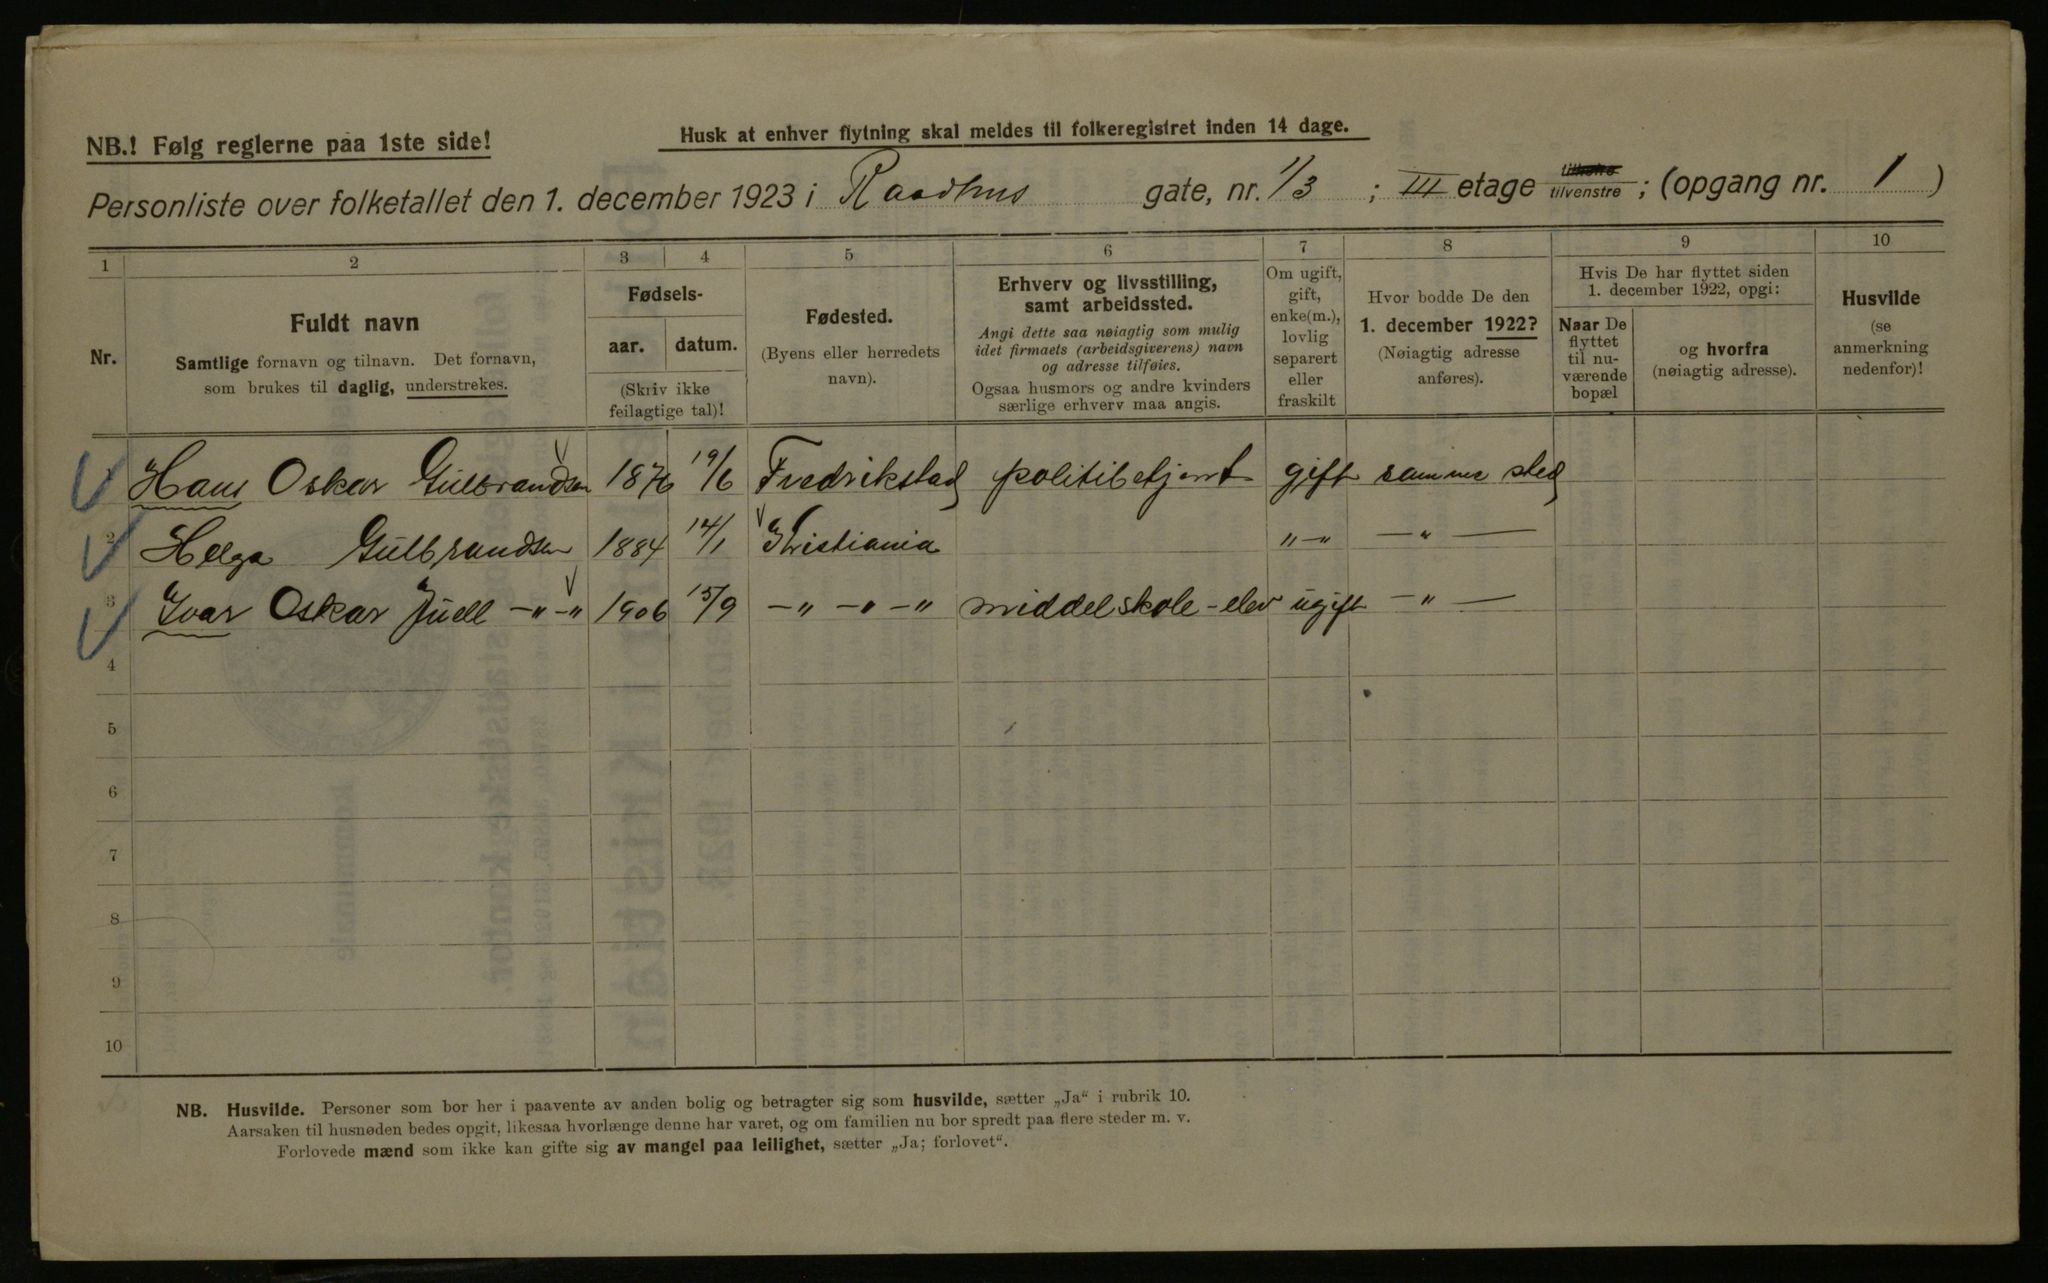 NB.! Følg reglerne paa 1ste side!
Husk at enhver flytning skal meldes til folkeregistret inden 14 dage.
Personliste over folketallet den 1. december 1923 i Raadhus gate, nr. 1/3 ; III etage tilhøire tilvenstre ; (opgang nr. 1 )
1 2 3 4 5 6 7 8 9 10
Nr.
Fuldt navn
Samtlige fornavn og tilnavn. Det fornavn,
som brukes til daglig, understrekes.
Fødsels-
aar. datum.
(Skriv ikke
feilagtige tal)!
Fødested.
(Byens eller herredets
navn).
Erhverv og livsstilling,
samt arbeidssted.
Angi dette saa nøiagtig som mulig
idet firmaets (arbeidsgiverens) navn
og adresse tilføies.
Ogsaa husmors og andre kvinders
særlige erhverv maa angis.
Om ugift,
gift,
enke(m.),
lovlig
separert
eller
fraskilt
Hvor bodde De den
1. december 1922?
(Nøiagtig adresse
anføres).
Hvis De har flyttet siden
1. december 1922, opgi:
Naar De
flyttet
til nu-
værende
bopæl
og hvorfra
(nøiagtig adresse).
Husvilde
(se
anmerkning
nedenfor)!
Hans Oskar Gulbrandsen 1876 19/6 Fredrikstad politibetjent gift samme sted
2 Helga Gulbrandsen 1884 14/1 Kristiania „-„ -„-
3 Ivar Oskar Juell -„-„ 1906 15/9 -„-„-„ middelskole-elev ugift -„-
4
5
6
7
8
9
10
NB. Husvilde. Personer som bor her i paavente av anden bolig og betragter sig som husvilde, sætter „Ja“ i rubrik 10.
Aarsaken til husnøden bedes opgit, likesaa hvorlænge denne har varet, og om familien nu bor spredt paa flere steder m. v.
Forlovede mænd som ikke kan gifte sig av mangel paa leilighet, sætter „Ja; forlovet“.